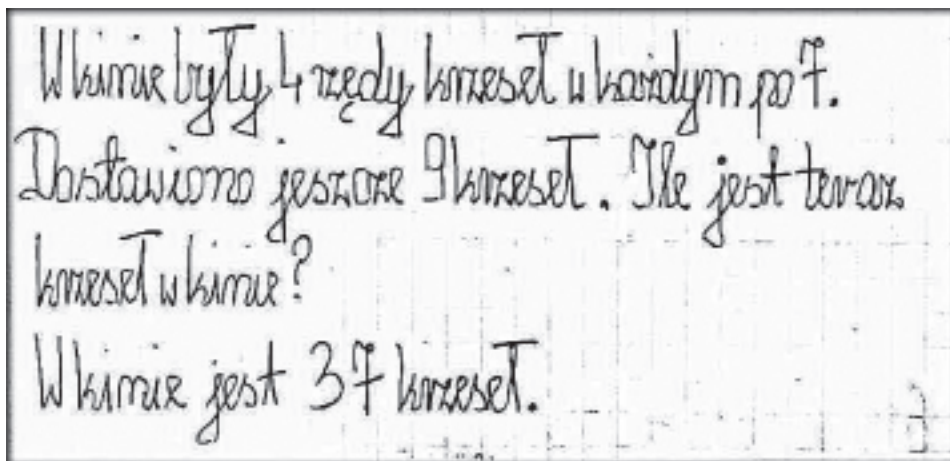 W kinie były 4 rzędy krzeseł w każdym po 7.
Dostawiono jeszcze 9 krzeseł. Ile jest teraz
krzeseł w kinie?
W kinie jest 37 krzeseł.